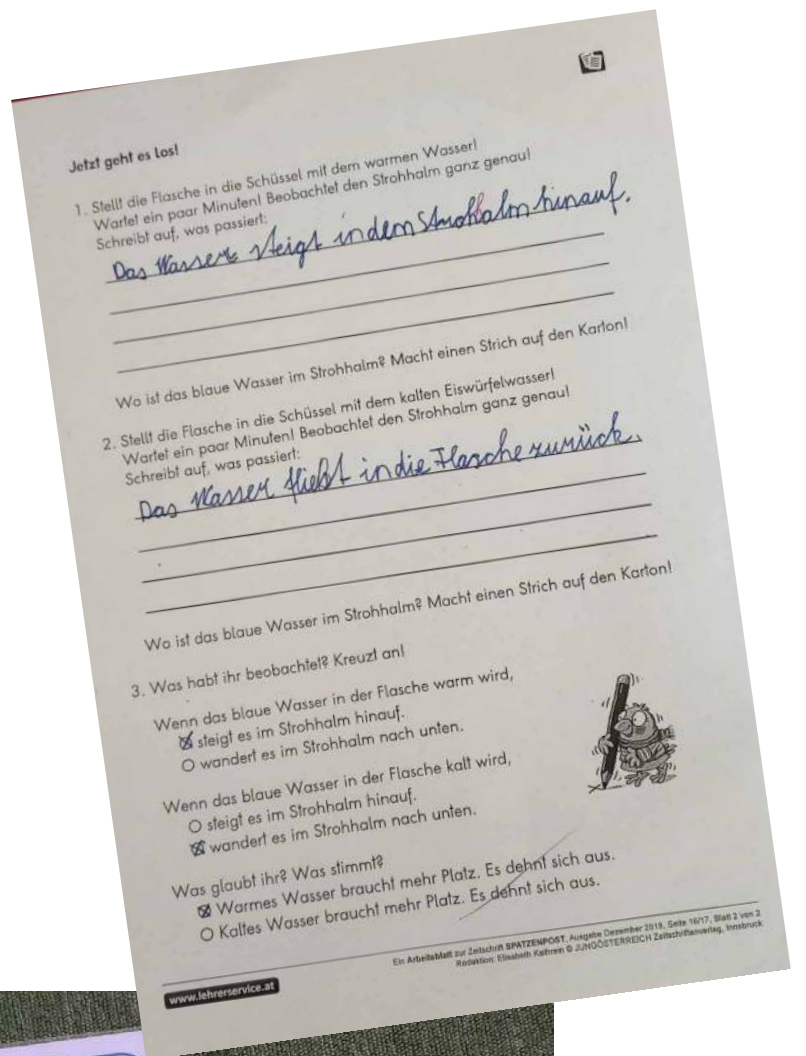 Jetzt geht es los!
1. Stellt die Flasche in die Schüssel mit dem warmen Wasser!
Wartet ein paar Minuten! Beobachtet den Strohhalm ganz genau!
Schreibt auf, was passiert:
Das Wasser steigt in dem Strohhalm hinauf.
Wo ist das blaue Wasser im Strohhalm? Macht einen Strich auf den Karton!
2. Stellt die Flasche in die Schüssel mit dem kalten Eiswürfelwasser!
Wartet ein paar Minuten! Beobachtet den Strohhalm ganz genau!
Schreibt auf, was passiert:
Das Wasser fließt in die Flasche zurück.
Wo ist das blaue Wasser im Strohhalm? Macht einen Strich auf den Karton!
3. Was habt ihr beobachtet? Kreuzt an!
Wenn das blaue Wasser in der Flasche warm wird,
steigt es im Strohhalm hinauf.
wandert es im Strohhalm nach unten.
Wenn das blaue Wasser in der Flasche kalt wird,
steigt es im Strohhalm hinauf.
wandert es im Strohhalm nach unten.
Was glaubt ihr? Was stimmt?
Warmes Wasser braucht mehr Platz. Es dehnt sich aus.
Kaltes Wasser braucht mehr Platz. Es dehnt sich aus.
Ein Arbeitsblatt zur Zeitschrift SPATZENPOST, Ausgabe Dezember 2019, Seite 16/17, Blatt 2 von 2
Redaktion: Elisabeth Kathrein © JUNGÖSTERREICH Zeitschriftenverlag, Innsbruck
www.lehrerservice.at